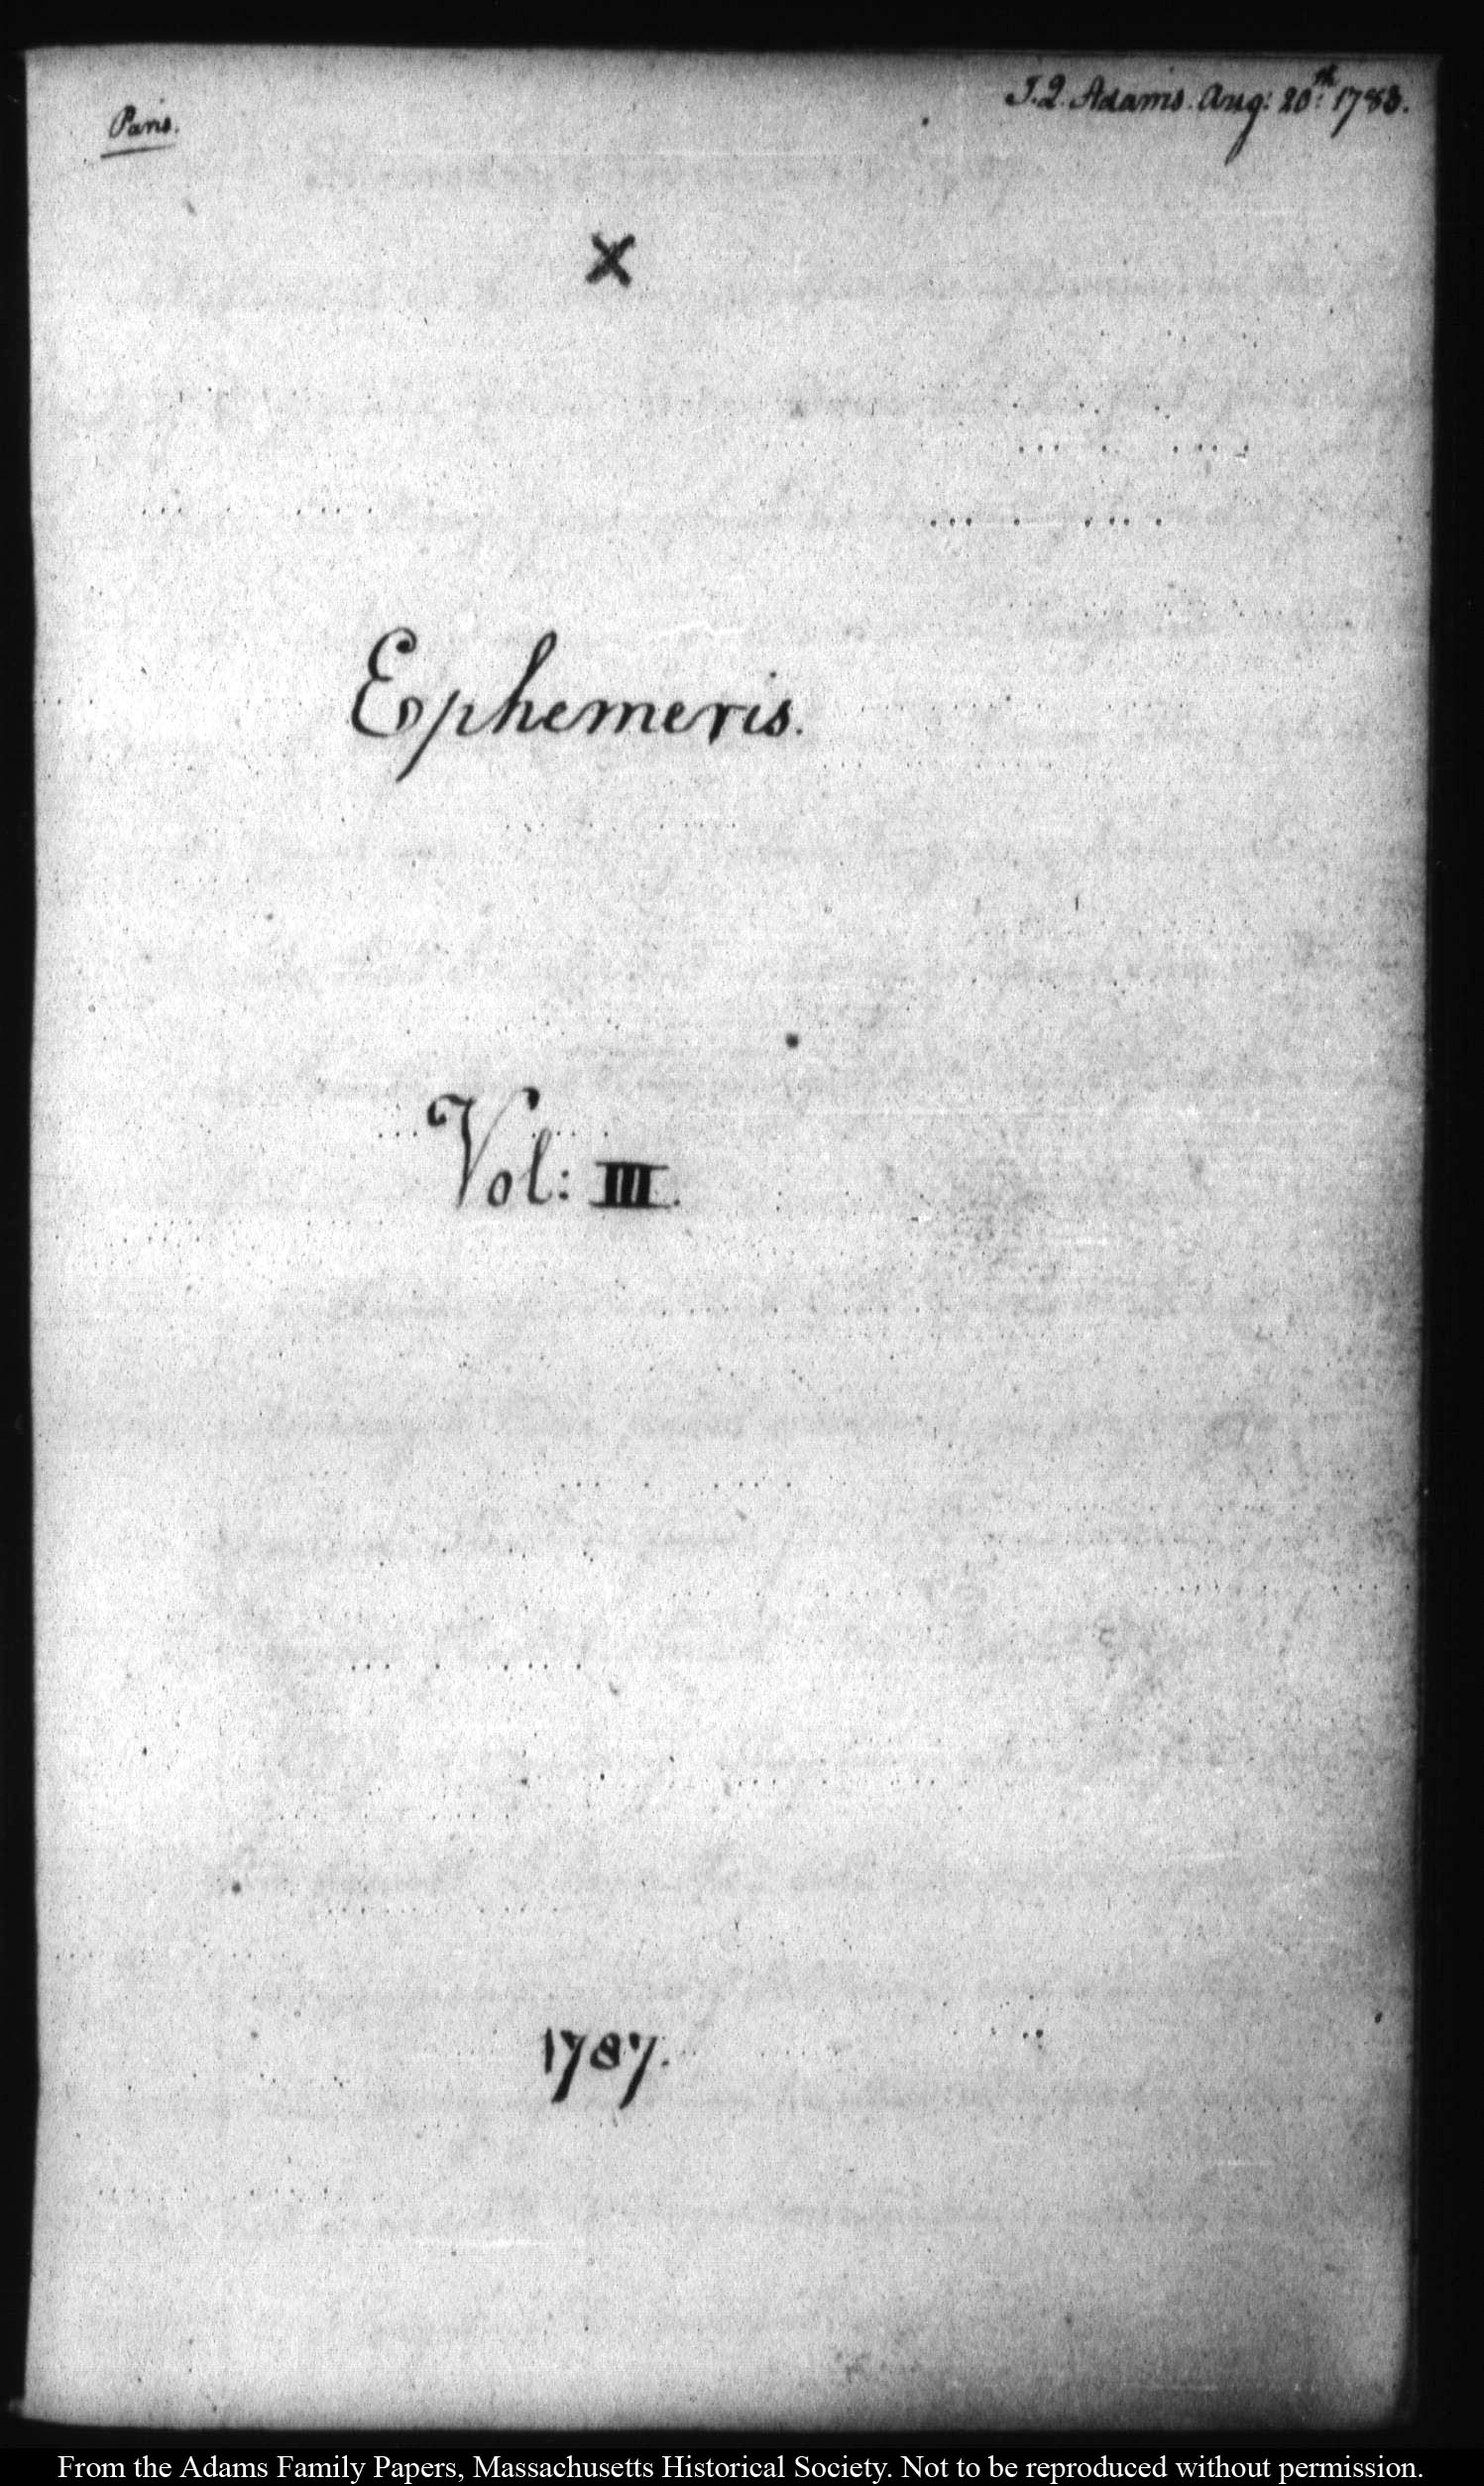 Paris.
J.Q. Adams. Aug: 20.th 1783.
X
Ephemeris.
Vol: III.
1787.
From the Adams Family Papers, Massachusetts Historical Society. Not to be reproduced without permission.